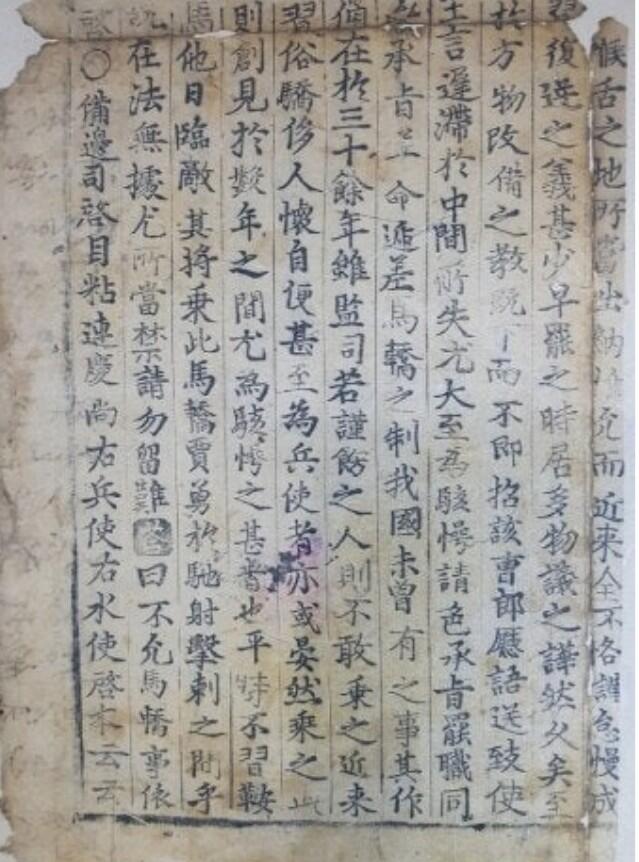 喉舌之地所當出納惟允而近來全不恪謹怠慢成
習復逆之義甚少早罷之時居多物議之譁然久矣至
於方物改備之教旣下而不即招該曹郎廳語送致使
王言遲滯於中間所失尤大至爲駭愕請色承旨罷職同
承旨並命遞差馬轎之制我國未曾有之事其作
俑在於三十餘年雖監司若謹飭之人則不敢乘之近來
習俗驕侈人懷自便甚至為兵使者亦或晏然乘之此
則創見於數年之間尤為駭愕之甚者也平時不習鞍
馬他日臨敵其將乘此馬轎賈勇於馳射擊刺之間乎
況在法無據尤所當禁請勿留難答曰不允馬轎事依
啓○備邊司啓目粘連慶尚右兵使右水使啓本云云